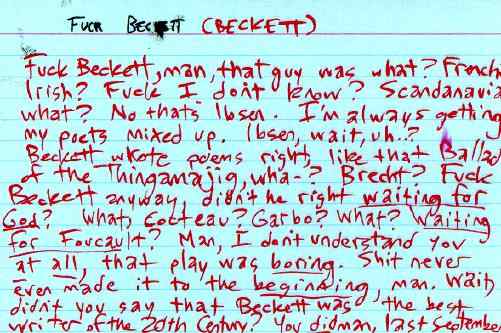 Fuck Beckett (BECKETT)
Fuck Beckett, man, that guy was what? French
Irish? Fuck I don't know? Scandanavia
what? No thats Ibsen. I'm always getting
my poets mixed up. Ibsen, wait, uh..?
Beckett wrote poems right, like that Ballad
of the Thingamajig, wha-? Brecht? Fuck
Beckett anyway, didn't he right waiting for
God? What, Cocteau? Garbo? What? Waiting
for Foucault? Man, I don't understand you
at all, that play was boring. Shit never
even made it to the beginning, man. Wait,
didn't you say that Beckett was the best
writer of the 20th Century? You did man, last September